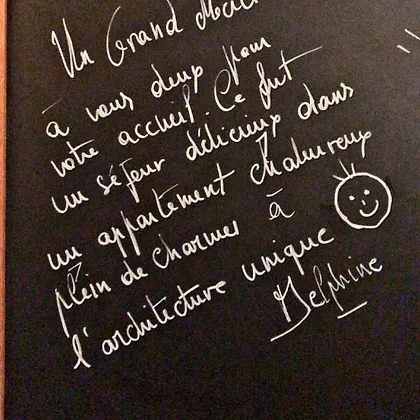 Un Grand Merci
à vous deux pour
votre accueil. Ce fut
un séjour délicieux dans
un appartement chaleureux
plein de charmes à
l'architecture unique
Delphine